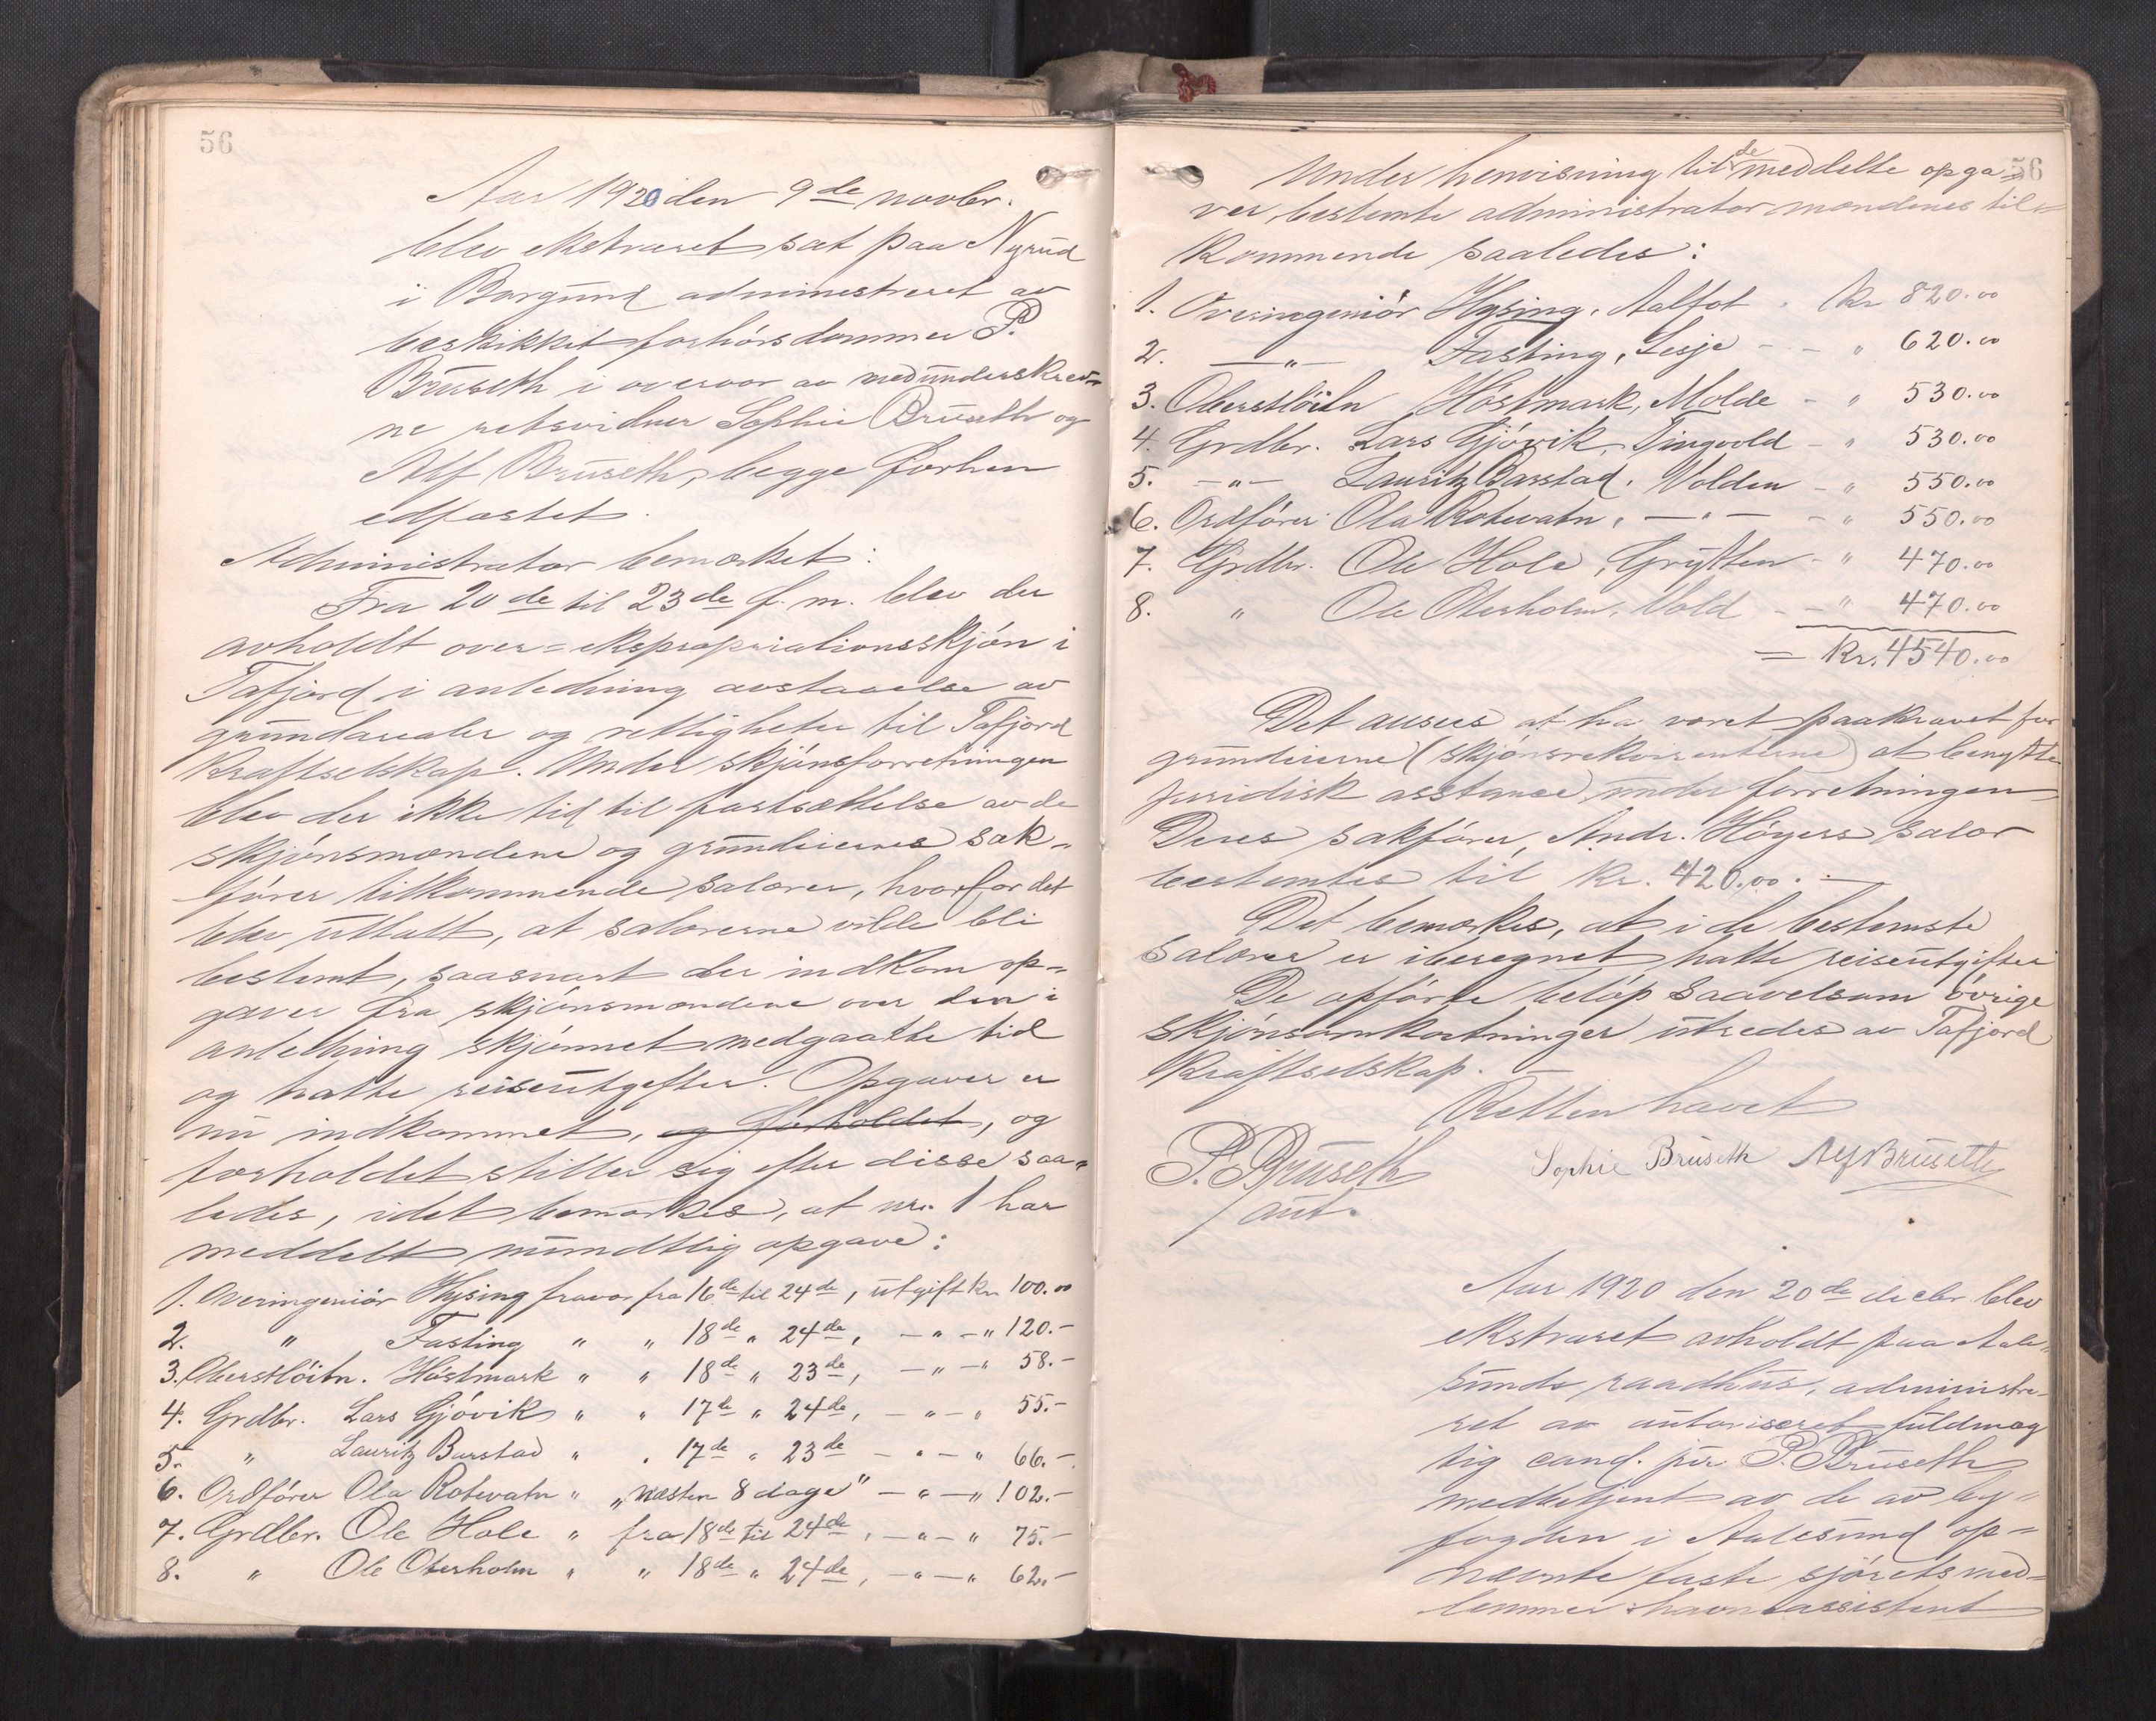 56
Aar 1920 den 9de novbr.
blev ekstraret sat paa Nyrud
i Borgund administreret av
beskikket forhørsdommer P.
Brüseth i overvær av medunderskrev-
ne retsvidner Sophie Brüseth og
Alf Brüseth, begge forhen
edfæstet.
Administrator bemærket:
Fra 20de til 23de f. m. blev der
avholdt over=ekspropriationsskjøn i
Tafjord i anledning avstaaelse av
grundarealer og rettigheter til Tafjord
Kraftselskap. Under skjønsforretningen
blev der ikke tid til fastsættelse av de
skjønsmændene og grundeiernes sak-
fører tilkommende salærer, hvorfor det
blev uttalt, at salærerne vilde bli
bestemt, saasnart der indkom op-
gaver fra skjønsmændene over den i
anledning skjønnet medgaatte tid
og hatte reiseutgifter. Opgaver er
nu indkommet, og forholdet, og
forholdet stiller sig efter disse saa-
ledes, idet bemærkes, at nr. 1 har
meddelt mundtlig opgave:
1. Overingeniør Hysing fravær fra 16de til 24de, utgift kr. 100.00
2. " Fasting " " 18de " 24de, - " - " 120.-
3. Oberstløitn. Høstmark " " 18de " 23de, - " - " 58.-
4. Grdbr. Lars Gjøvik " " 17de " 24de, - " - " 55.-
5. " Lauritz Barstad " " 17de " 23de - " - " 66.-
6. Ordfører Ola Rotevatn " "næsten 8 dage" - " - " 102.-
7. Grdbr. Ole Hole " fra 18de til 24de, - " - " 75.-
8. " Ole Oterholm " " 18de " 24de, - " - " 62.-
56
Under henvisning til de meddelte opga=
ver, bestemte administrator mændenes til=
kommende saaledes:
1. Overingeniør Hysing, Aalfot . Kr 820.00
2. - " - Fasting, Lesje - - " 620.00
3. Oberstløitn Høstmark, Molde - " 530.00
4. Grdbr. Lars Gjøvik, Tingvold - " 530.00
5. - " - Lauritz Barstad, Volden - " 550.00
6. Ordfører Ola Rotevatn, - " - - " 550.00
7. Grdbr. Ole Hole, Grytten - " 470.00
8. " Ole Oterholm, Vold - - " 470.00
= Kr. 4540.00
Det ansees at ha været paakrævet for
grundeierne (skjønsrekvirenterne) at benytte
juridisk asstance under forretningen.
Deres sakfører, Andr. Høyers salær
bestemtes til kr. 420.00. -
Det bemærkes, at i de bestemste
salærer er iberegnet hatte reiseutgifter
De opførte beløp saavelsom øvrige
skjønsomkostninger utredes av Tafjord
Kraftselskap. -
Retten hævet
P. Brüseth Sophie Brüseth Alf Brüseth
aut.
Aar 1920 den 20de decbr. blev
ekstraret avholdt paa Aale-
sunds raadhus, administre-
ret av autoriseret fuldmæg
tig cand. jur. P. Brüseth
medbetjent av de av by-
fogden i Aalesund op-
nævnte faste sjøretsmed-
lemmer havneassistent